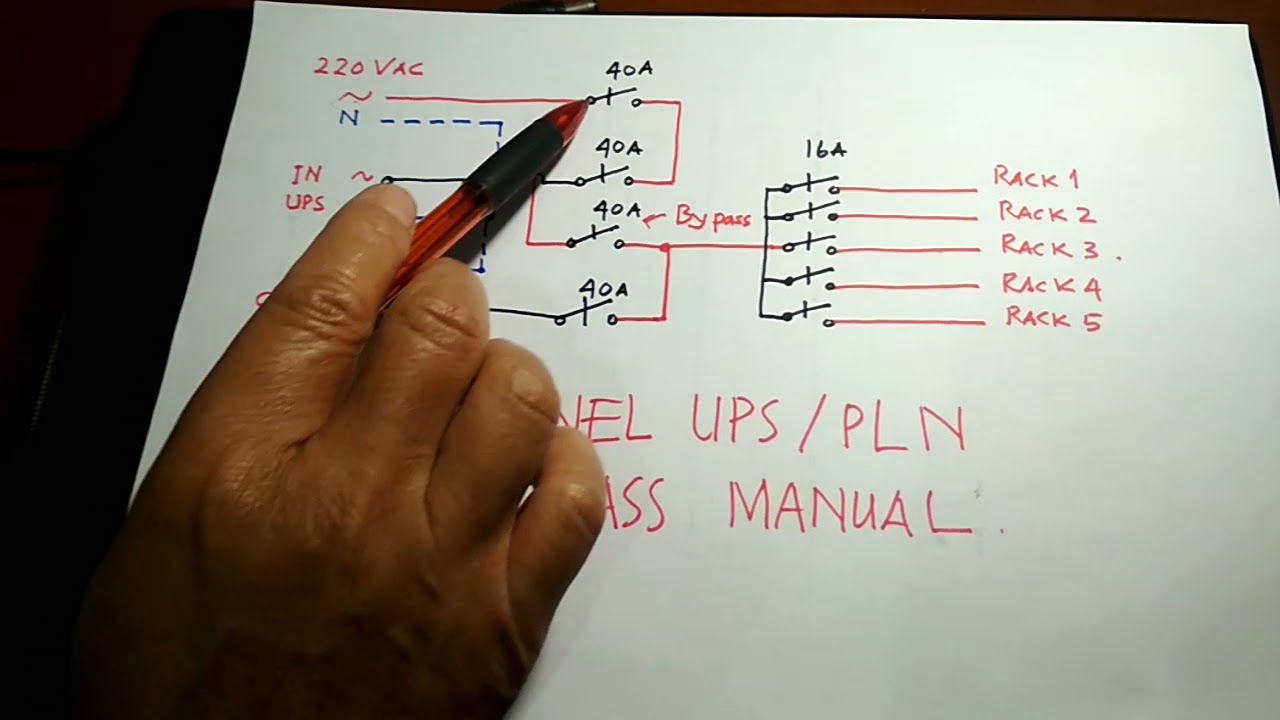 220 VAC
~
N
40A
IN ~
UPS
40A
40A
By pass
40A
16A
RACK 1
RACK 2
RACK 3 .
RACK 4
RACK 5
UPS/PLN
MANUAL.